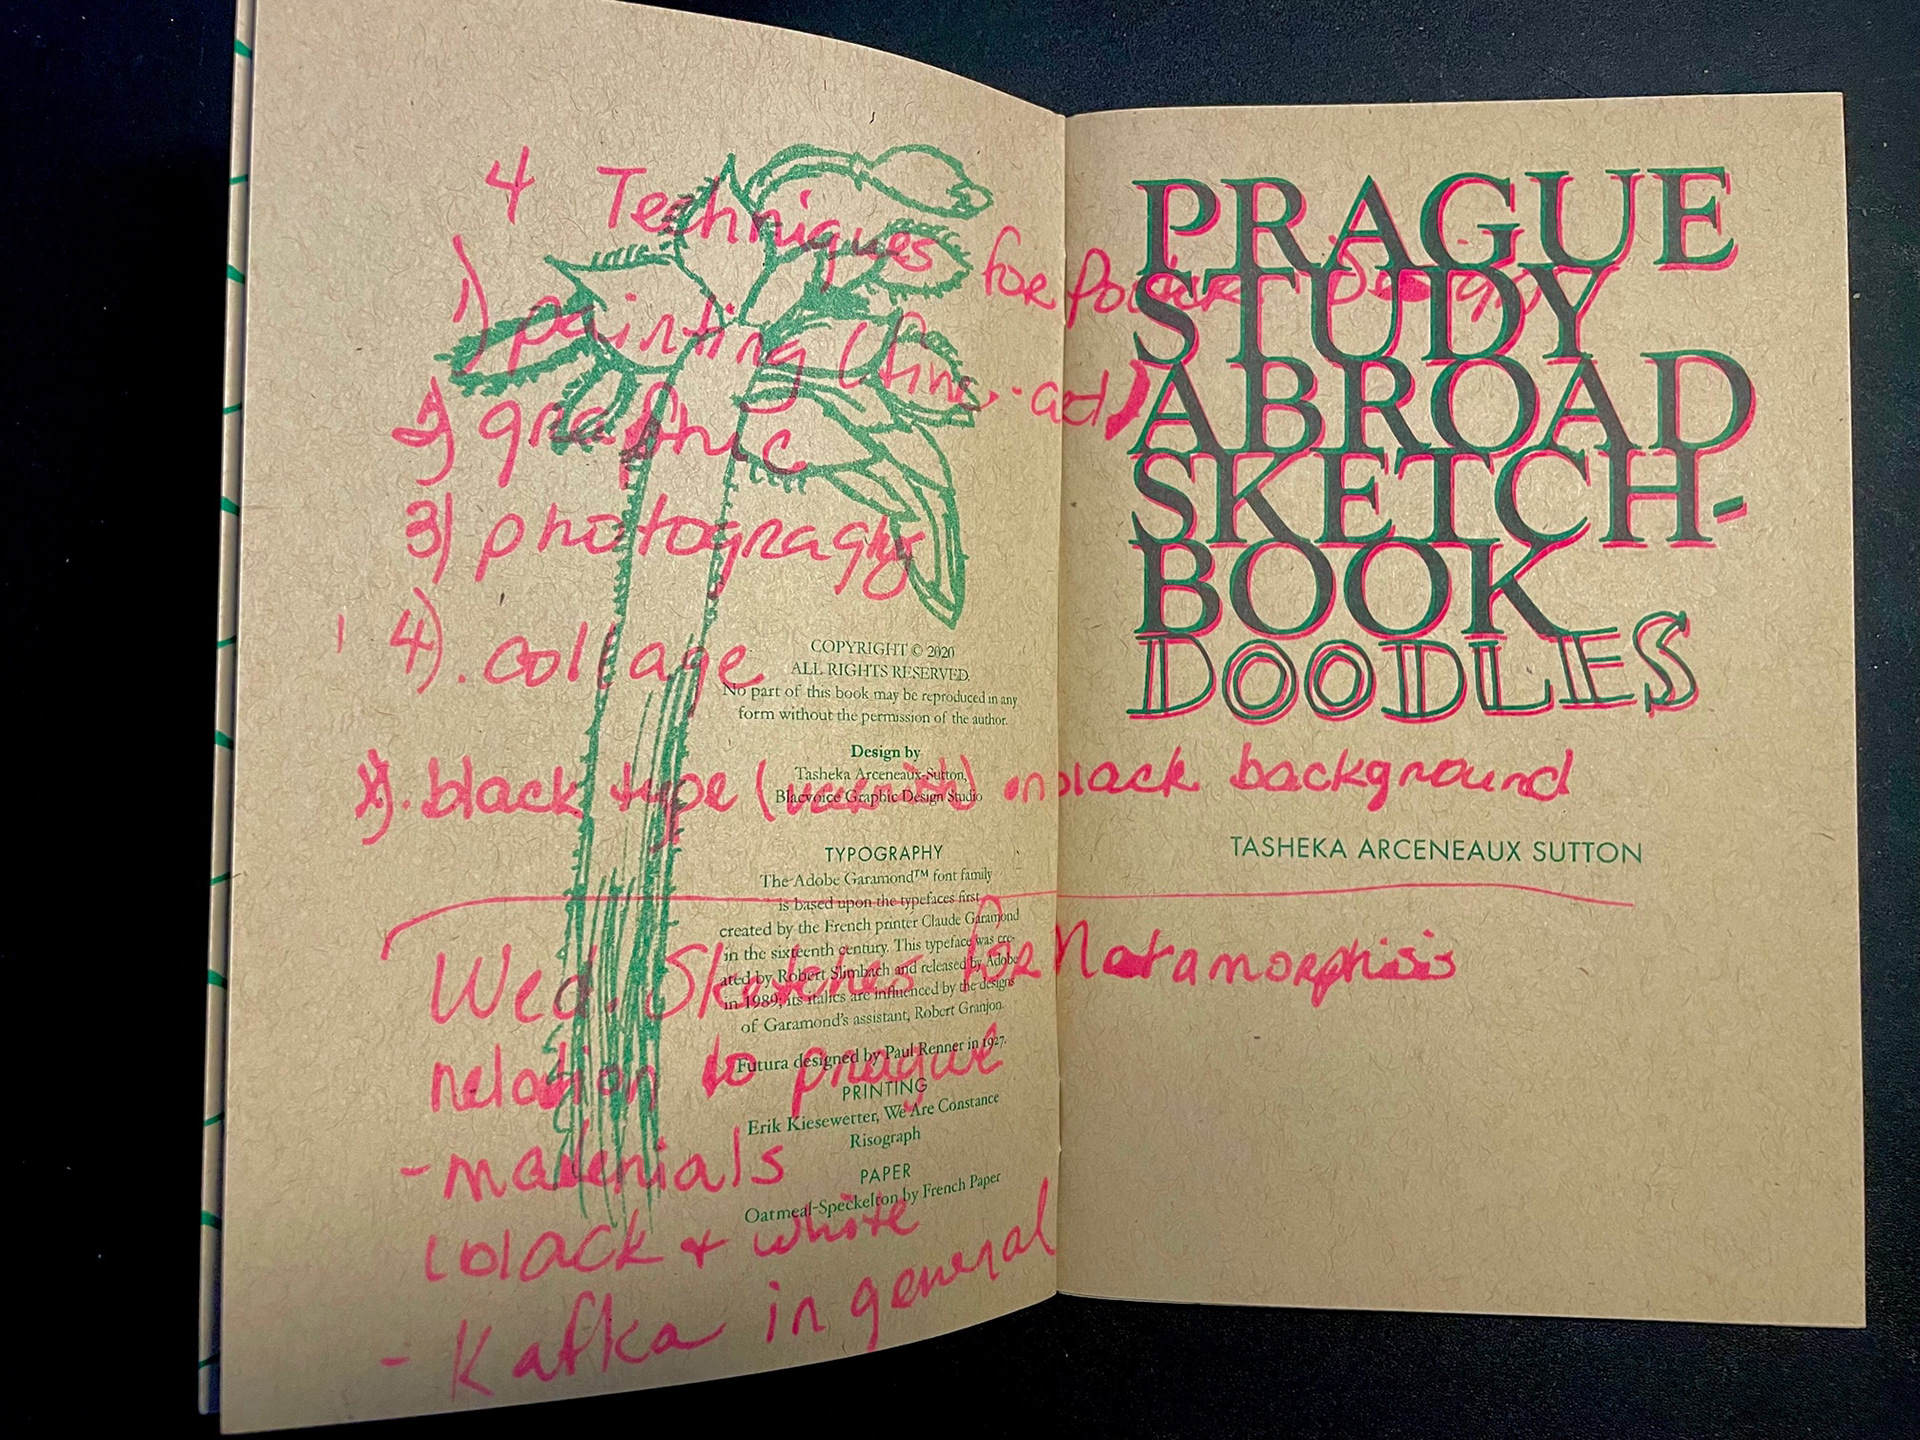 4 Techniques for Poster Design
1) painting (fine-art)
2) graphic
3) photography
4). collage
COPYRIGHT © 2020
ALL RIGHTS RESERVED.
No part of this book may be reproduced in any
form without the permission of the author.
Design by
Tasheka Arceneaux-Sutton,
Blacvoice Graphic Design Studio
black type (varnish) on black background
TYPOGRAPHY
The Adobe Garamond™ font family
is based upon the typefaces first
created by the French printer Claude Garamond
in the sixteenth century. This typeface was cre-
ated by Robert Slimbach and released by Adobe
in 1989; its italics are influenced by the designs
of Garamond's assistant, Robert Granjon.
Futura designed by Paul Renner in 1927.
PRINTING
Erik Kiesewetter, We Are Constance
Risograph
PAPER
Oatmeal-Speckelton by French Paper
Wed. Sketches for Metamorphisis
relation to prague
- materials
black + white
- Kafka in general
PRAGUE
STUDY
ABROAD
SKETCH-
BOOK
DOODLES
TASHEKA ARCENEAUX SUTTON